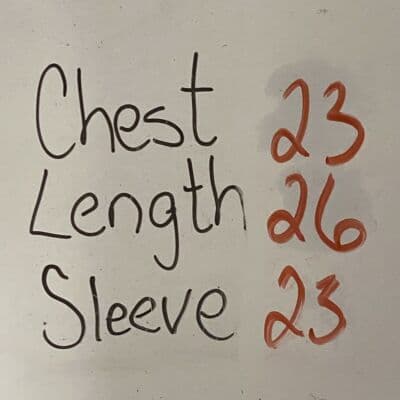 Chest 23
Length 26
Sleeve 23